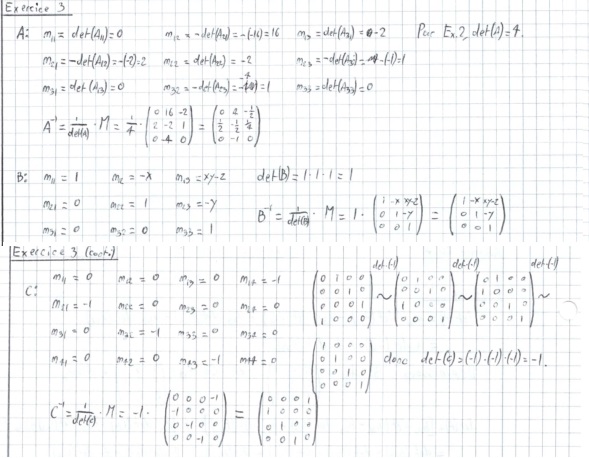 Exercice 3
A: m₁₁ = det(A₁₁) = 0 m₁₂ = -det(A₂₁) = -(-16) = 16 m₁₃ = det(A₃₁) = -2 Par Ex. 2, det(A) = 4.
m₂₁ = -det(A₁₂) = -(-2) = 2 m₂₂ = det(A₂₂) = -2 m₂₃ = -det(A₃₂) = -(-1) = 1
m₃₁ = det(A₁₃) = 0 m₃₂ = -det(A₂₃) = m₃₃ = det(A₃₃) = 0
A⁻¹ = 1/det(A) · M = 1/4 · (0 16 -2; 2 -2 1; 0 -4 0) = (0 4 -1/2; 1/2 -1/2 1/4; 0 -1 0)
B: m₁₁ = 1 m₁₂ = -x m₁₃ = xy-z det(B) = 1·1·1 = 1
m₂₁ = 0 m₂₂ = 1 m₂₃ = -y
m₃₁ = 0 m₃₂ = 0 m₃₃ = 1
B⁻¹ = 1/det(B) · M = 1 · (1 -x xy-z; 0 1 -y; 0 0 1) = (1 -x xy-z; 0 1 -y; 0 0 1)
Exercice 3 (cont.)
det·(-1) det·(-1) det·(-1)
C: m₁₁ = 0 m₁₂ = 0 m₁₃ = 0 m₁₄ = -1
m₂₁ = -1 m₂₂ = 0 m₂₃ = 0 m₂₄ = 0
m₃₁ = 0 m₃₂ = -1 m₃₃ = 0 m₃₄ = 0
m₄₁ = 0 m₄₂ = 0 m₄₃ = -1 m₄₄ = 0
(0 1 0 0; 0 0 1 0; 0 0 0 1; 1 0 0 0) ~ (0 1 0 0; 0 0 1 0; 1 0 0 0; 0 0 0 1) ~ (0 1 0 0; 1 0 0 0; 0 0 1 0; 0 0 0 1) ~
(1 0 0 0; 0 1 0 0; 0 0 1 0; 0 0 0 1) donc det(C) = (-1)·(-1)·(-1) = -1.
C⁻¹ = 1/det(C) · M = -1 · (0 0 0 -1; -1 0 0 0; 0 -1 0 0; 0 0 -1 0) = (0 0 0 1; 1 0 0 0; 0 1 0 0; 0 0 1 0)